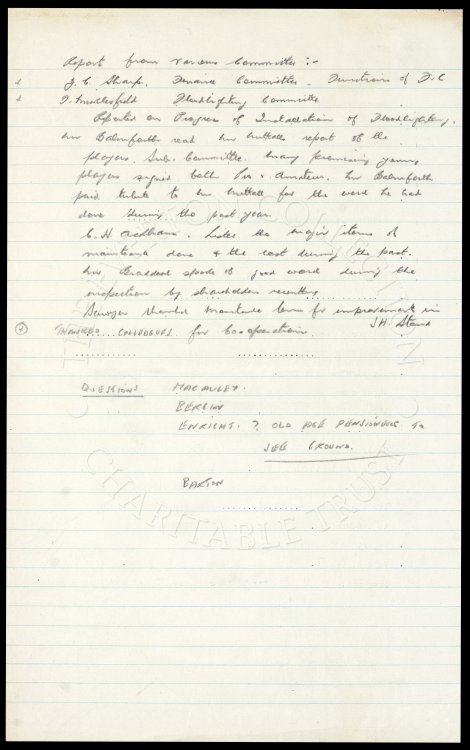 Report from various Committees :-
J. C. Sharp. Finance Committee. Functions of F.C
Floodlighting Committee
Reported on Progress of Installation of Floodlighting.
Mr Balmforth read Mr Nuttall's report of the
players Sub. Committee. Many promising young
players signed both Pro & Amateur. Mr Balmforth
paid tribute to Mr Nuttall for the work he had
done during the past year.
C. H. Listed the major items of
maintenance done & the cost during the past.
Mr spoke of good work during the
inspection by shareholders recently
thanked for improvement in
JH. Stand
THANKED COLLEAGUES for Co-operation
QUESTIONS MACAULEY.
BERGIN
ENRIGHT. ? OLD AGE PENSIONERS TO
SEE GROUND.
BARTON
CHARITABLE TRUST